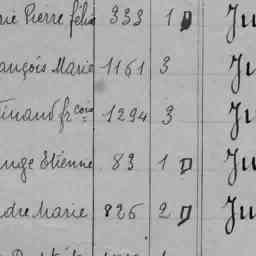 rie Pierre félix 333 1 D Ju
ançois Marie 1161 3 Ju
Finaud frçois 1294 3 Ju
ange Etienne 83 1 D Ju
dre Marie 826 2 D Ju